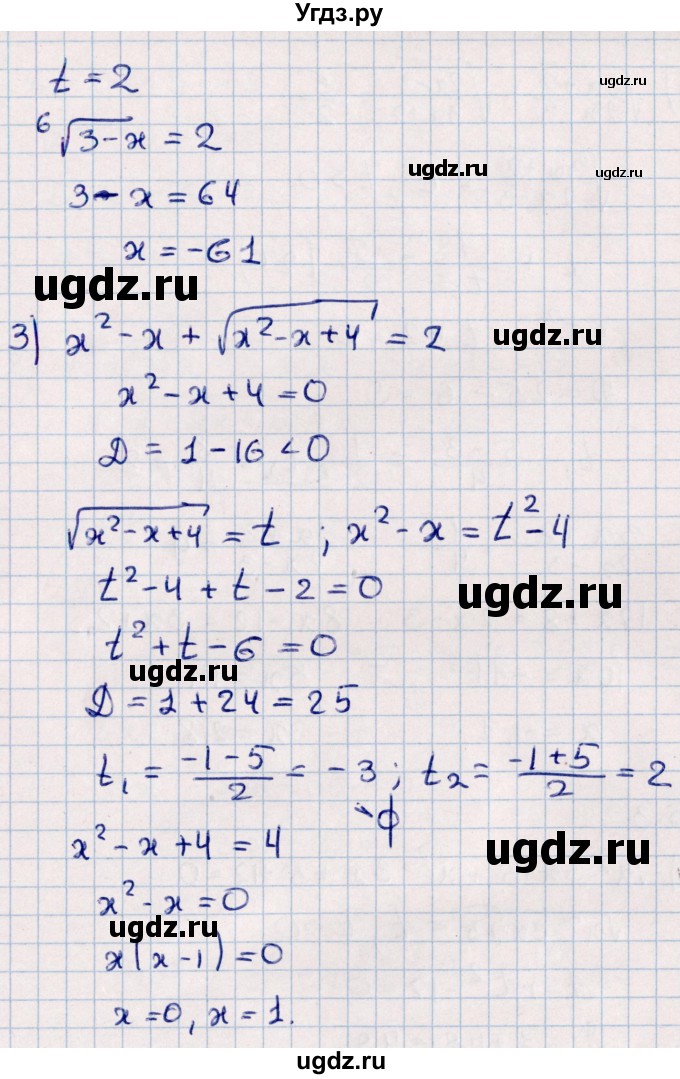 Угдз.ру
t = 2
ugdz.ru
⁶√(3-x) = 2
ugdz.ru
ugdz.ru
3 - x = 64
x = -61
ugdz.ru
3) x² - x + √(x² - x + 4) = 2
ugdz.ru
x² - x + 4 = 0
D = 1 - 16 < 0
√(x² - x + 4) = t ; x² - x = t² - 4
t² - 4 + t - 2 = 0
ugdz.ru
t² + t - 6 = 0
ugdz.ru
D = 1 + 24 = 25
t₁ = (-1 - 5)/2 = -3 ; t₂ = (-1 + 5)/2 = 2
↘ ϕ
x² - x + 4 = 4
ugdz.ru
x² - x = 0
ugdz.ru
x(x - 1) = 0
x = 0, x = 1.
ugdz.ru